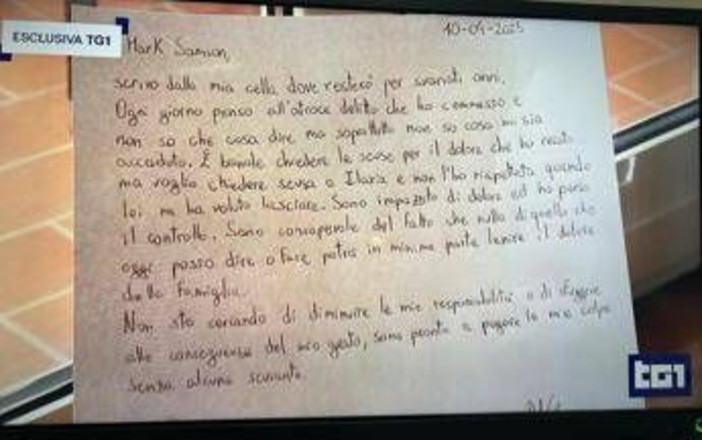 ESCLUSIVA TG1
10-04-2025
Mark Samson,
scrivo dalla mia cella dove resterò per svariati anni.
Ogni giorno penso all'atroce delitto che ho commesso e
non so che cosa dire ma soprattutto non so cosa mi sia
accaduto. È banale chiedere le scuse per il dolore che ho creato
ma voglio chiedere scusa a Ilaria e non l'ho rispettata quando
lei mi ha voluto lasciare. Sono impazzito di dolore ed ho perso
il controllo. Sono consapevole del fatto che nulla di quello che
oggi posso dire o fare potrà in minima parte lenire il dolore
della famiglia.
Non sto cercando di diminuire le mie responsabilità o di sfuggire
alle conseguenze del mio gesto, sono pronto a pagare la mia colpa
senza alcuna scusante.
tg1